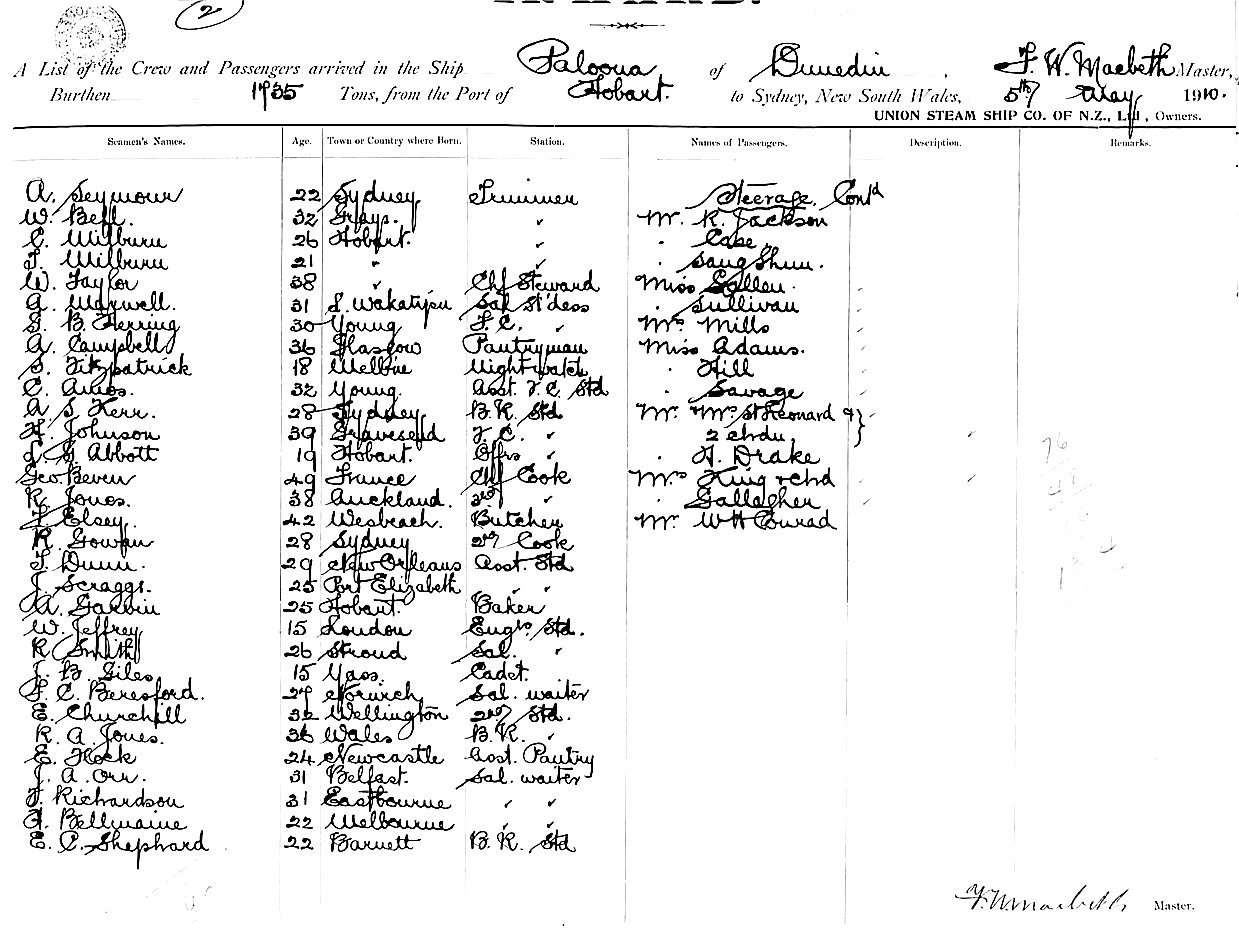 2
A List of the Crew and Passengers arrived in the Ship Paloona of Dunedin, F. W. Macbeth Master,
Burthen 1935 Tons, from the Port of Hobart. to Sydney, New South Wales, 5th May 1910.
UNION STEAM SHIP CO. OF N.Z., Ltd, Owners.
Seamen's Names. Age. Town or Country where Born. Station. Names of Passengers. Description. Remarks.
A. Seymour 22 Sydney Trimmer Steerage. Contd
W. Bell. 32 Grays. " Mr. R. Jackson
C. Milburn 26 Hobart. " " Case
F. Milburn 21 " " " Sang Shun.
W. Taylor 38 " Chf Steward Miss
A. Maxwell. 31 L. Wakatipu Sal St'dess " Sullivan
G. B. Herring 30 Young F.C. " Mrs Mills
A. Campbell 36 Glasgow Pantryman Miss Adams.
S. Fitzpatrick 18 Melbne Nightwatch " Hill
C. Amos. 32 Young. Asst. F.C. Std " Savage
A S Kerr. 28 Sydney B.R. Std Mr. & Mrs. St Leonard &
H. Johnson 39 Gravesend F.C. " 2 chdn
Abbott 19 Hobart. Offrs " " H. Drake
Geo. Beven 49 France Chf Cook Mrs King & chd
R. Jones. 38 Auckland. 3rd " " Gallagher
F. Elsey. 42 Wesbeach. Butcher Mr. W H Conrad
R. Gowan 28 Sydney 2nd Cook
T. Dunn. 29 New Orleans Asst. Std
J. Scraggs. 25 Port Elizabeth " "
A. Garbin 25 Hobart. Baker
W. Jeffrey 15 London Engrs. Std.
R Smith 26 Stroud Sal. "
J. B. Giles 15 Yass. Cadet.
F. C. Beresford. 27 Norwich Sal. waiter
E. Churchill 32 Wellington 2nd Std.
R. A. Jones. 36 Wales B.R. "
E. Hock 24 Newcastle Asst. Pantry
J. A. Orr. 31 Belfast. Sal. waiter
F. Richardson 31 Eastbourne " "
A. Bellmaine 22 Melbourne " "
E. C. Shephard 22 Barnett B.R. Std
F. W. Macbeth Master.